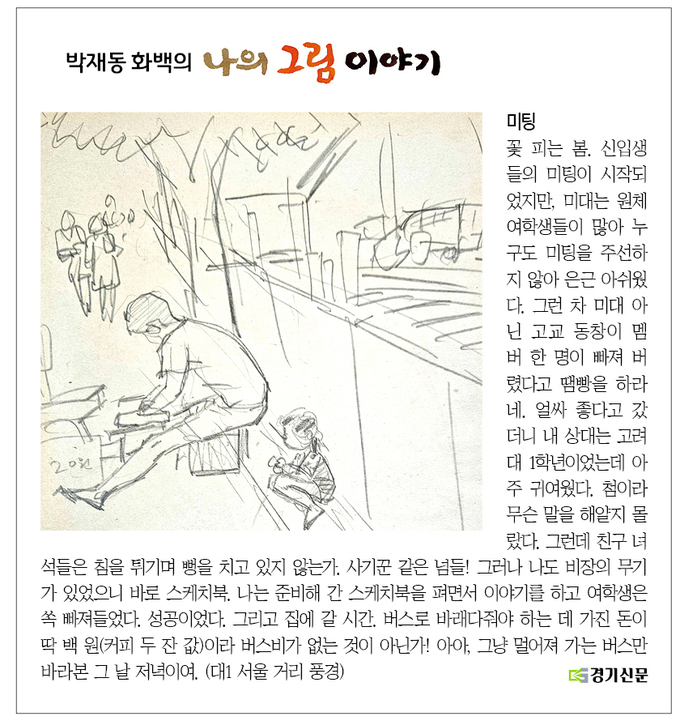 박재동 화백의 나의 그림 이야기
미팅
꽃 피는 봄. 신입생
들의 미팅이 시작되
었지만, 미대는 원체
여학생들이 많아 누
구도 미팅을 주선하
지 않아 은근 아쉬웠
다. 그런 차 미대 아
닌 고교 동창이 멤
버 한 명이 빠져 버
렸다고 땜빵을 하라
네. 얼싸 좋다고 갔
더니 내 상대는 고려
대 1학년이었는데 아
주 귀여웠다. 첨이라
무슨 말을 해얄지 몰
랐다. 그런데 친구 녀
석들은 침을 튀기며 뻥을 치고 있지 않는가. 사기꾼 같은 넘들! 그러나 나도 비장의 무기
가 있었으니 바로 스케치북. 나는 준비해 간 스케치북을 펴면서 이야기를 하고 여학생은
쏙 빠져들었다. 성공이었다. 그리고 집에 갈 시간. 버스로 바래다줘야 하는 데 가진 돈이
딱 백 원(커피 두 잔 값)이라 버스비가 없는 것이 아닌가! 아아, 그냥 멀어져 가는 버스만
바라본 그 날 저녁이여. (대1 서울 거리 풍경)
20원
경기신문